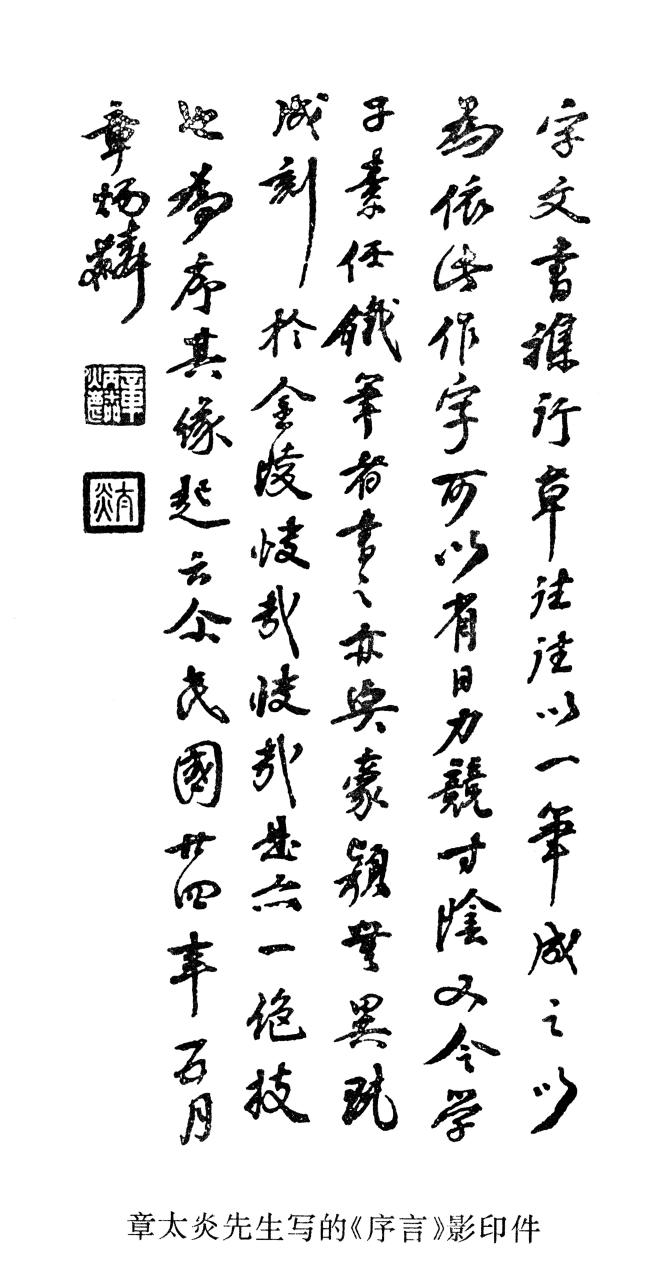 字文書襍行草往往以一筆成之以
為依此作字可以省日力競寸陰又令学
子素任鐵筆者書之亦與豪穎無異既
成刻於金陵哉哉是亦一絕技
也為序其緣起云尒民國廿四年五月
章炳麟
章炳麟
太炎
章太炎先生写的《序言》影印件